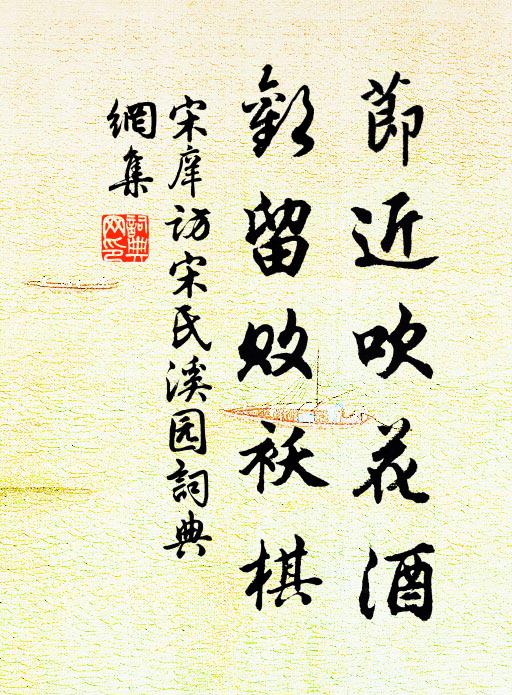 節近吹花酒
歡留败袄棋
宋庠访宋氏溪园詞典
網集
詞典
网印